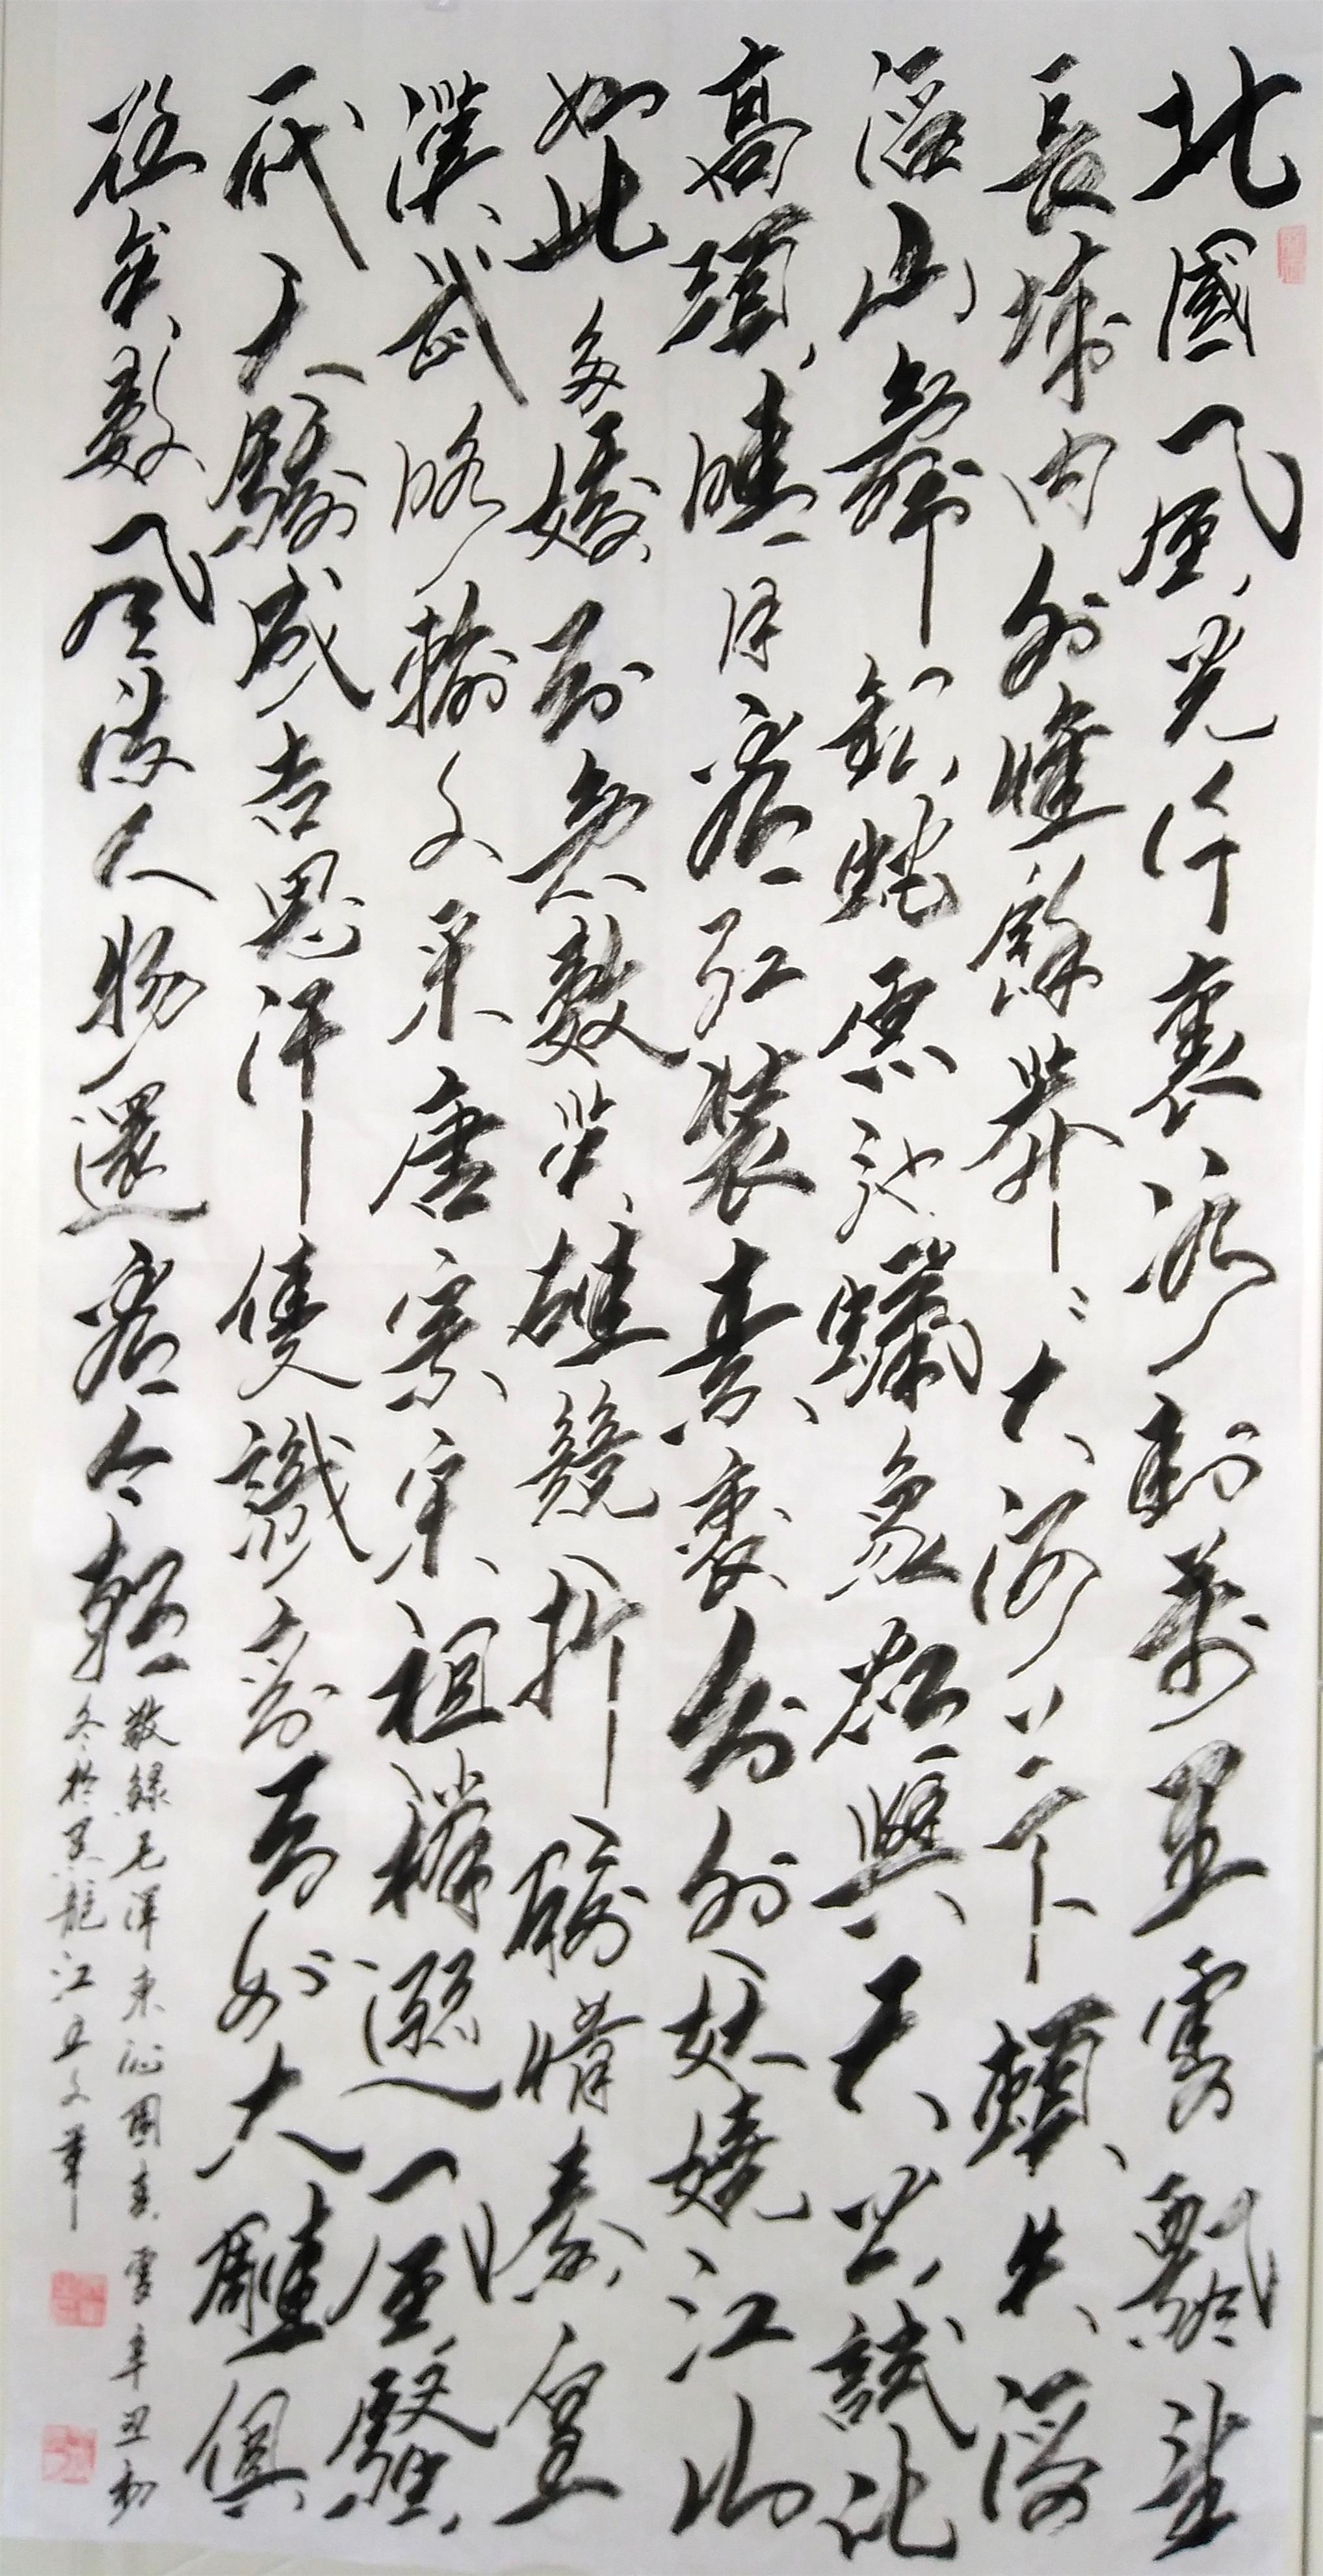 北國風光千裏冰封萬里雪飄望
長城內外惟餘莽莽大河上下頓失滔
滔山舞銀蛇原馳蠟象欲與天公試比
高須晴日看紅裝素裹分外妖嬈江山
如此多嬌引無數英雄競折腰惜秦皇
漢武略輸文采唐宗宋祖稍遜風騷
一代天驕成吉思汗隻識彎弓射大雕俱
往矣數風流人物還看今朝
敬録毛澤東沁園春雪辛丑初
冬於黑龍江王文華